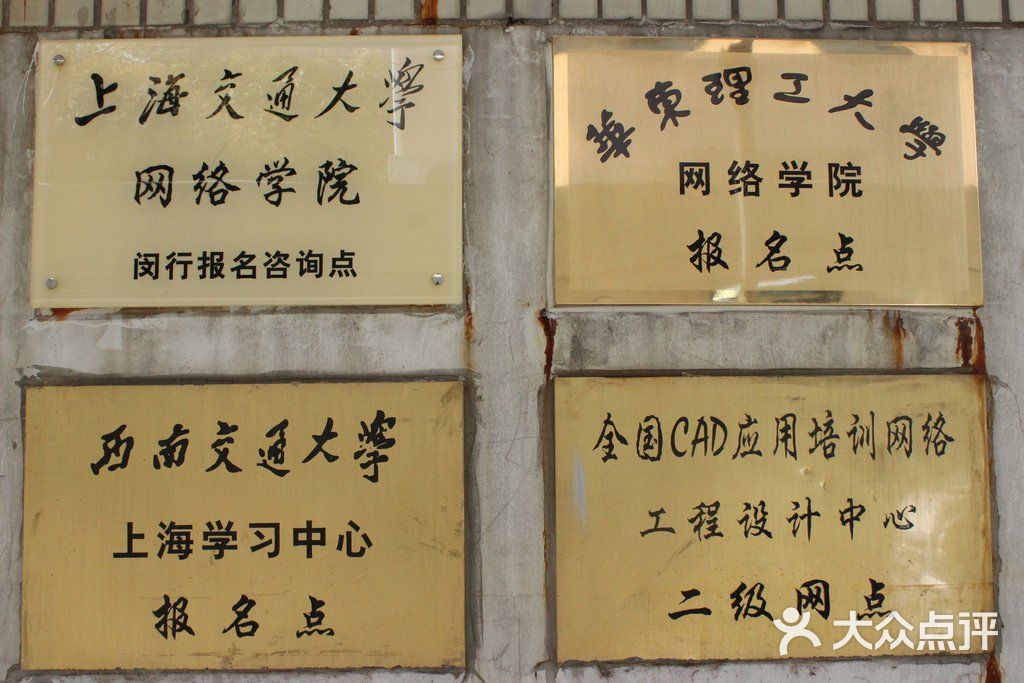 上海交通大學
网络学院
闵行报名咨询点
華東理工大學
网络学院
报名点
西南交通大學
上海学习中心
报名点
全国CAD应用培训网络
工程设计中心
二级网点
大众点评